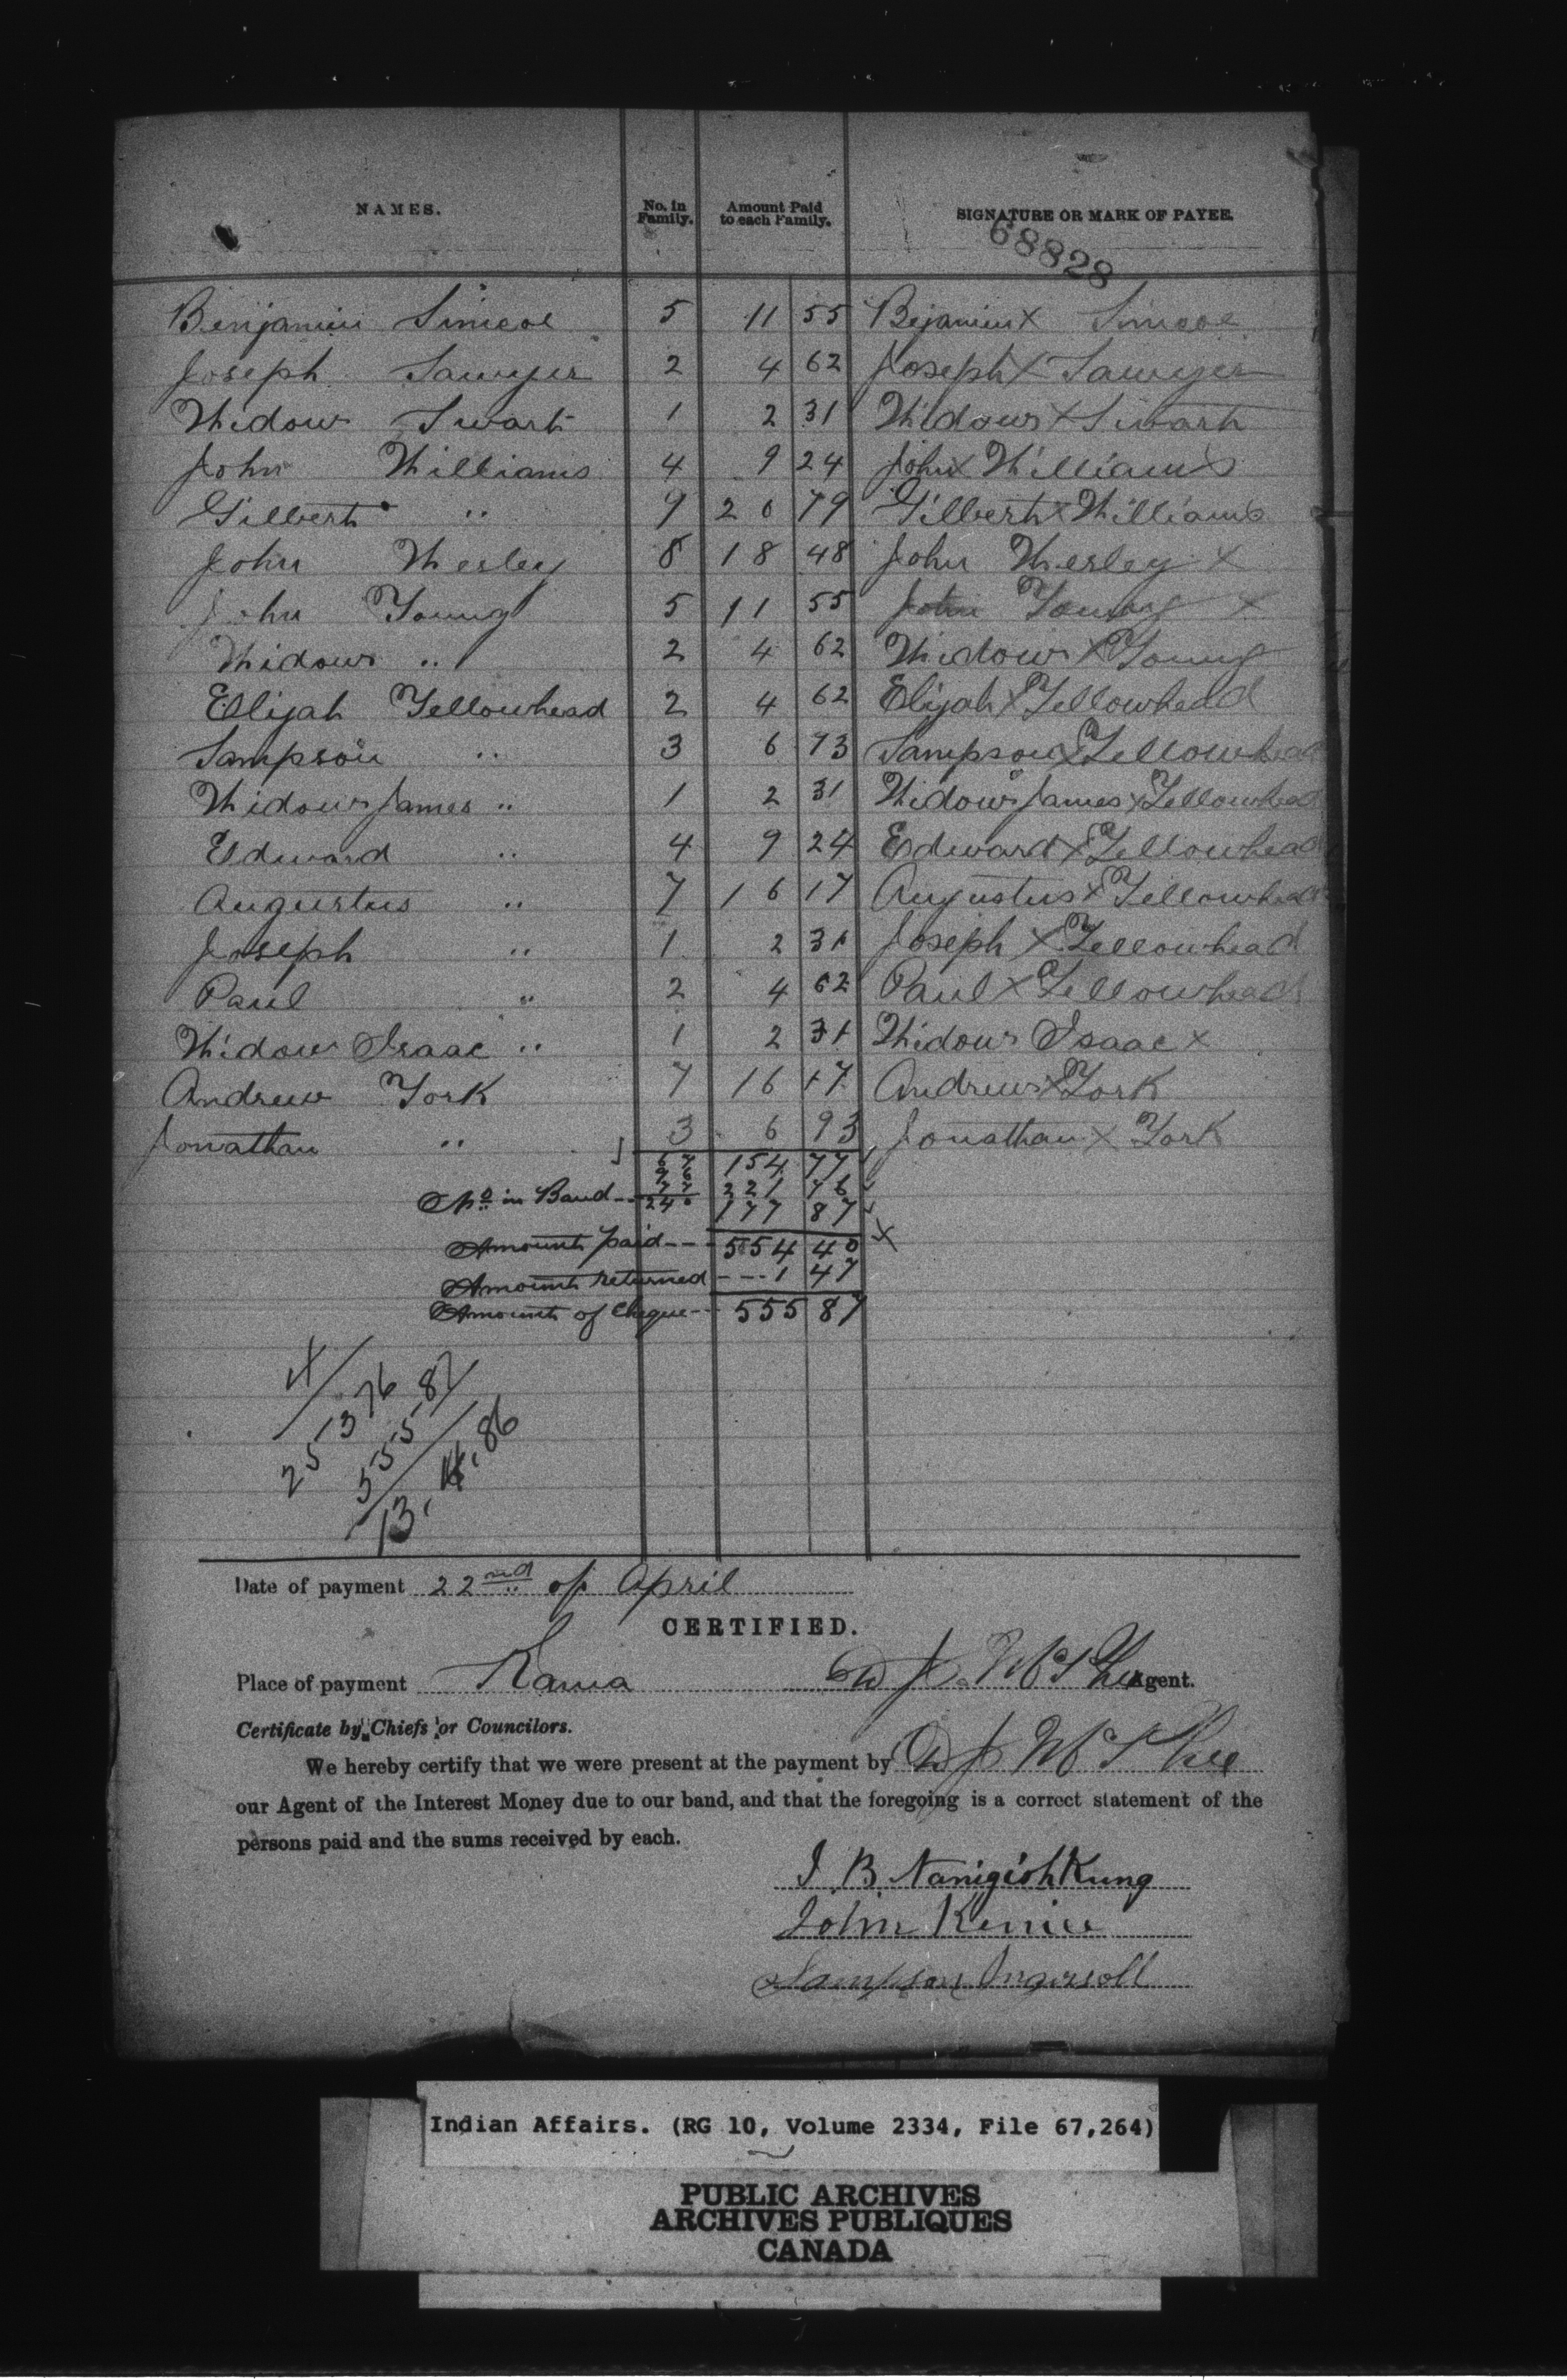 NAMES. No. in Family. Amount Paid to each Family. SIGNATURE OR MARK OF PAYEE.
68828
Benjamin Simcoe 5 11 55 Bejamin X Simcoe
Joseph Sawyer 2 4 62 Joseph X Sawyer
Widow Swart 1 2 31 Widow X Swart
John Williams 4 9 24 John X Williams
Gilbert " 9 20 79 Gilbert X Williams
John Wesley 8 18 48 John Wesley X
John Young 5 11 55 John Young X
Widow " 2 4 62 Widow X Young
Elijah Yellowhead 2 4 62 Elijah X Yellowhead
Sampson " 3 6 93 Sampson X Yellowhead
Widow James " 1 2 31 Widow James X Yellowhead
Edward " 4 9 24 Edward X Yellowhead
Augustus " 7 16 17 Augustus X Yellowhead
Joseph " 1 2 31 Joseph X Yellowhead
Paul " 2 4 62 Paul X Yellowhead
Widow Isaac " 1 2 31 Widow Isaac X
Andrew York 7 16 17 Andrew X York
Jonathan " 3 6 93 Jonathan X York
67 154 77
96 221 76
No in Band 77 177 87
240
Amount paid 554 40 X
Amount returned 1 47
Amount of Cheque 555 87
13 76
25
555 87
13, 86
Date of payment 22nd of April
CERTIFIED.
Place of payment Rama D J McPhee Agent.
Certificate by Chiefs or Councilors.
We hereby certify that we were present at the payment by D J McPhee
our Agent of the Interest Money due to our band, and that the foregoing is a correct statement of the
persons paid and the sums received by each.
J. B. Nanigishkung
John Kenice
Sampson Ingersoll
Indian Affairs. (RG 10, Volume 2334, File 67,264)
PUBLIC ARCHIVES
ARCHIVES PUBLIQUES
CANADA